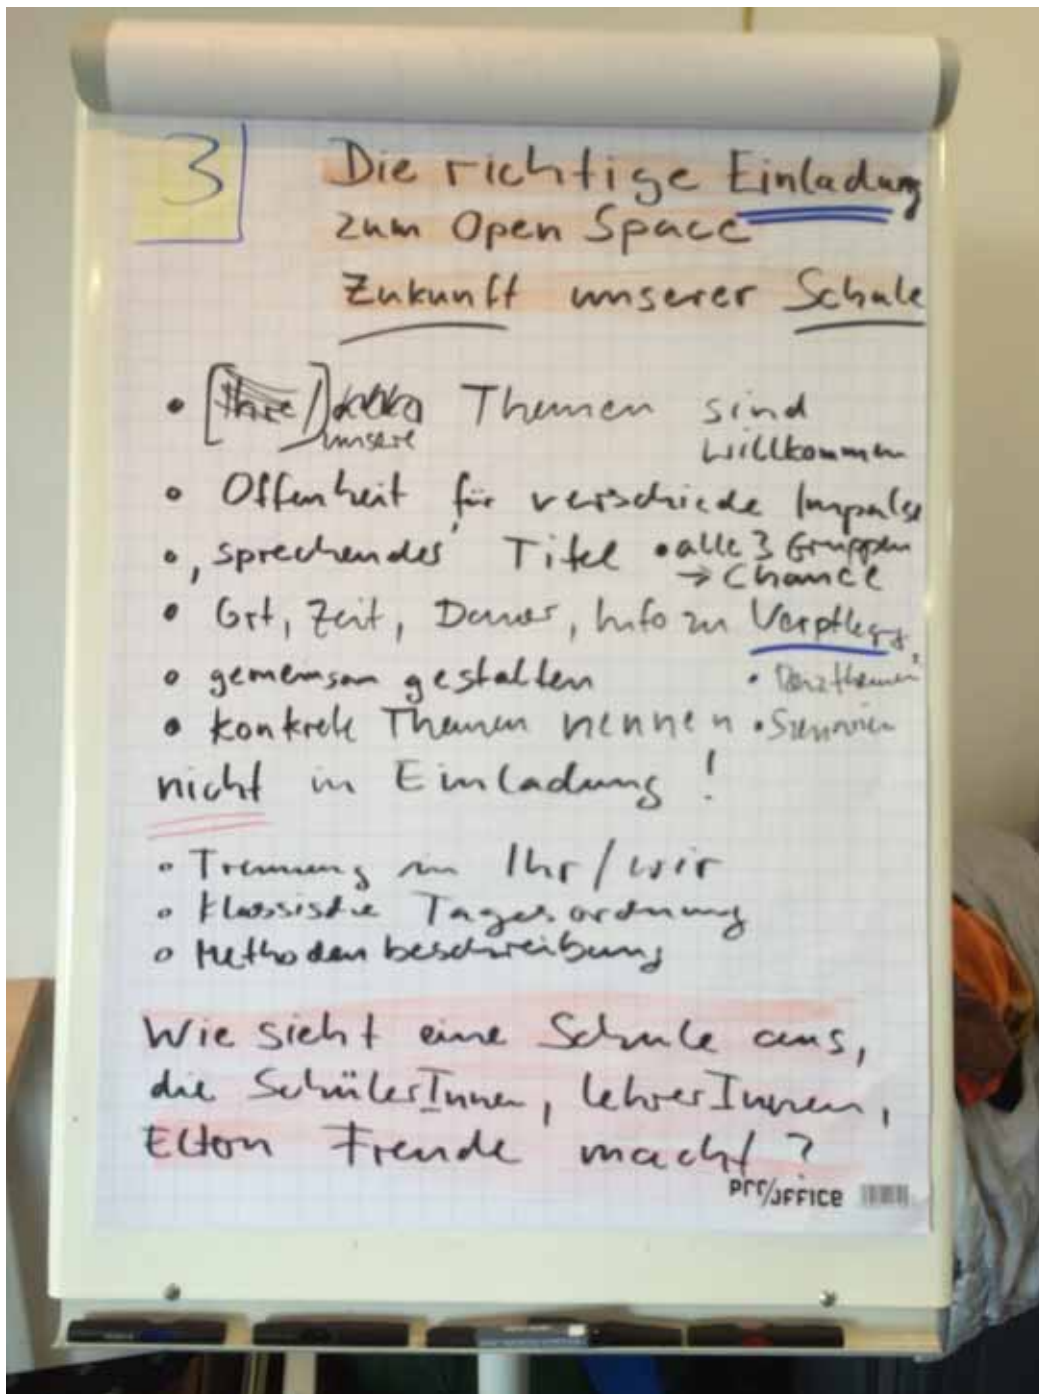 3
Die richtige Einladung
zum Open Space
Zukunft unserer Schule
• [Ihre/] unsere Themen sind
willkommen
• Offenheit für verschiede Impulse
• 'sprechender' Titel • alle 3 Gruppen
→ Chance
• Ort, Zeit, Dauer, Info zu Verpfleg
• gemeinsam gestalten
• konkrete Themen nennen • Szenarien
nicht in Einladung!
• Trennung in Ihr/wir
• klassische Tagesordnung
• Methodenbeschreibung
Wie sieht eine Schule aus,
die SchülerInnen, LehrerInnen,
Eltern Freude macht?